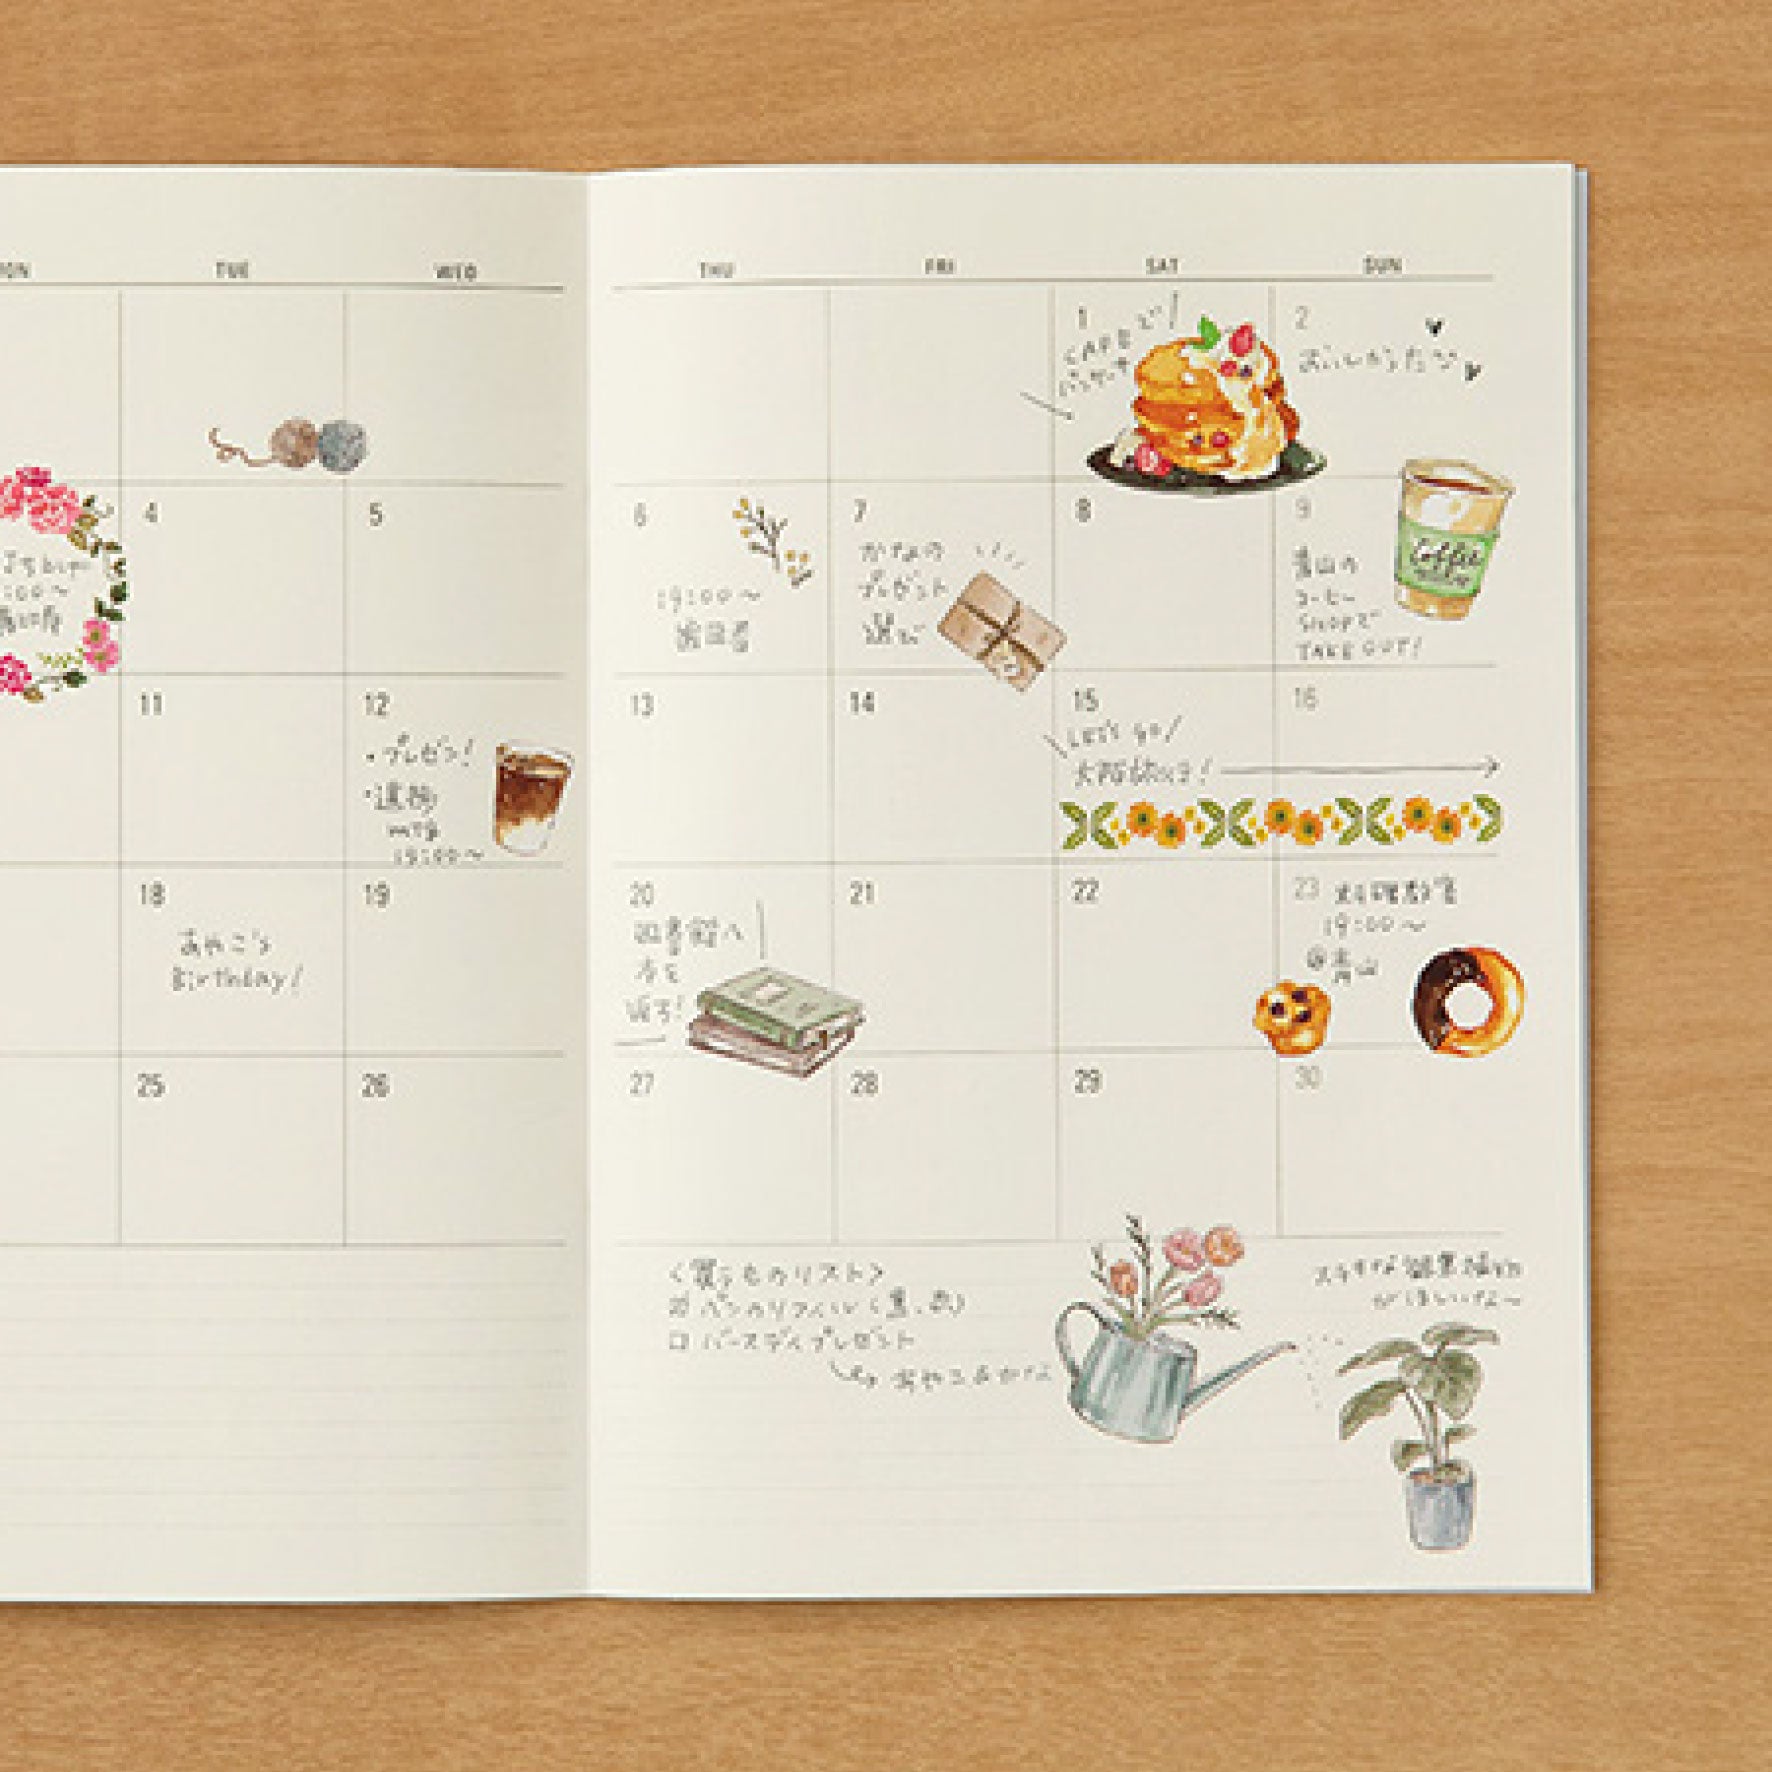 TUE
WED
THU
FRI
SAT
SUN
1
CAFEで
パンケーキ
2
おいしかった
4
5
6
19:00～
歯医者
7
かなの
プレゼント
選び
8
9
青山の
コーヒー
SHOPで
TAKE OUT!
Coffee
11
12
・プレゼン!
mtg
19:00～
13
14
15
Let's go!
大阪旅行!
16
18
あやこ's
Birthday!
19
20
図書館へ
本を
返す!
21
22
23 料理教室
19:00～
@青山
25
26
27
28
29
30
<買うものリスト>
バースデイプレゼント
あやこ&かな
ステキな観葉植物
がほしいな～